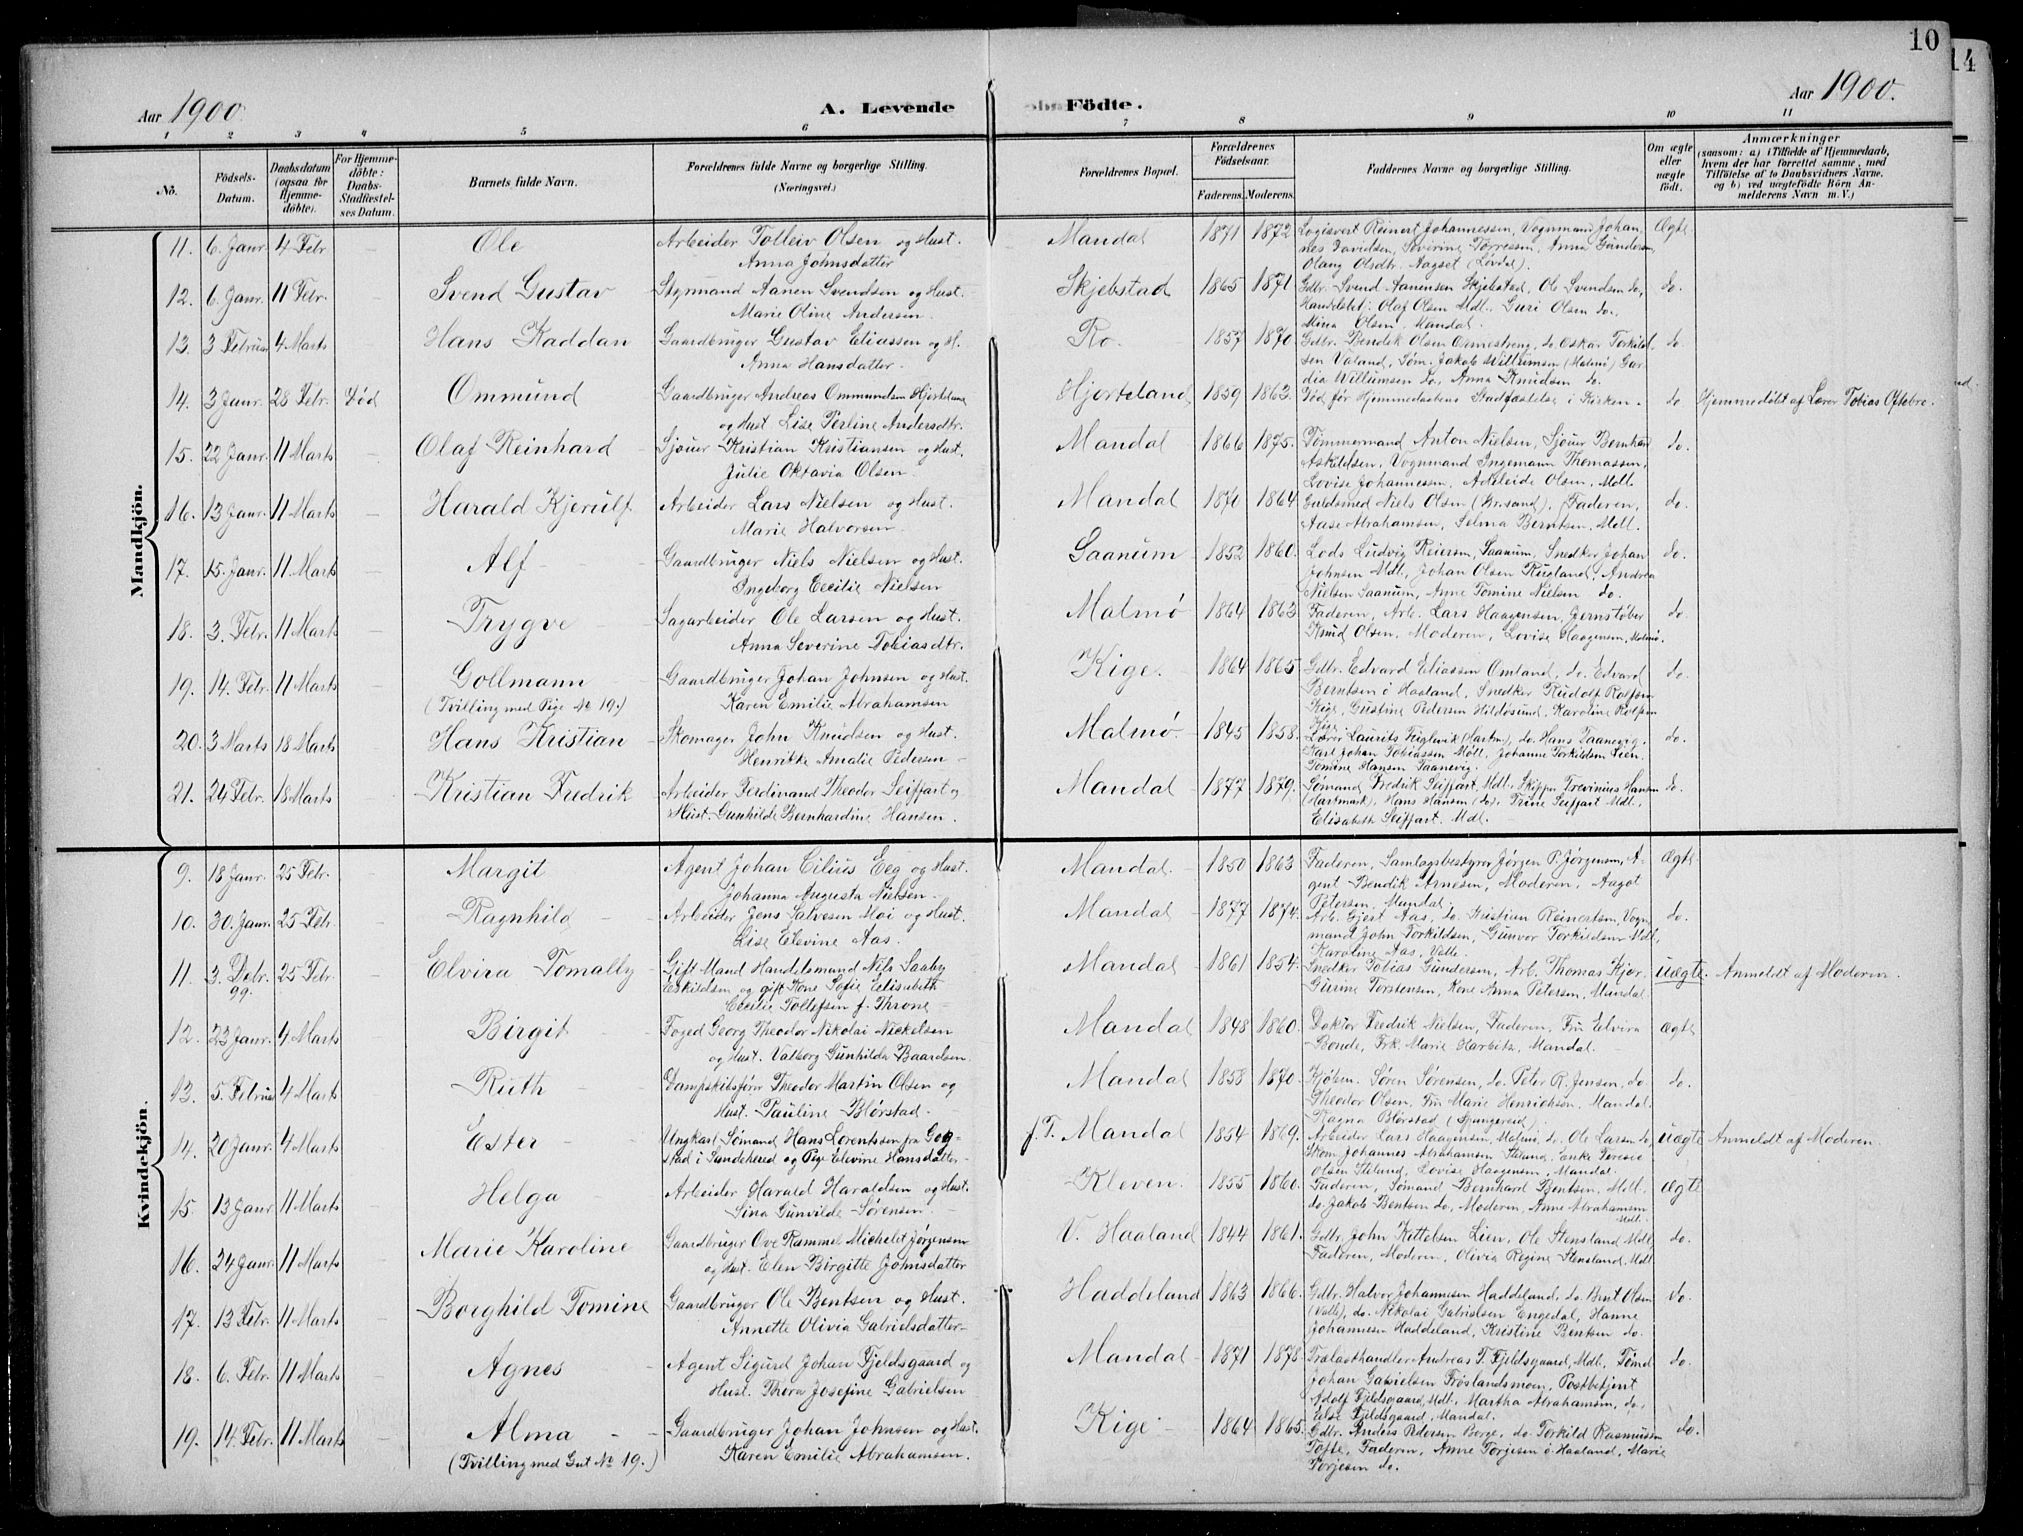 10
14
Aar 1900.
A. Levende
Födte.
Aar 1900.
1 2 3 4 5 6 7 8 9 10 11
No.
Födsels-Datum.
Daabsdatum (ogsaa for Hjemme-döbte).
For Hjemme-döbte: Daabs-Stadfæstel-ses Datum.
Barnets fulde Navn.
Forældrenes fulde Navne og borgerlige Stilling. (Næringsvei.)
Forældrenes Bopæl.
Forældrenes Födselsaar.
Faderens. Moderens.
Faddernes Navne og borgerlige Stilling.
Om ægte eller uægte födt.
Anmærkninger (saasom: a) i Tilfælde af Hjemmedaab, hvem der har forrettet samme, med Tilföielse af to Daabsvidners Navne, og b) ved uægtefödte Börn An-melderens Navn m. V.)
Mandkjön.
11. 6. Janr. 4 Febr. - Ole Arbeider Tolleiv Olsen og Hust. Mandal 1871 1872 Logisvert Reinert Johannessen, Vognmand Johan- Ægte
Anna Johnsdatter nes Davidsen, Severine Torressen, Anna Gundersen,
Olang Olsdtr. Aagset (Løvdal).
12. 6. Janr. 11 Febr. - Svend Gustav Styrmand Aanen Svendsen og Hust. Skjebstad 1865 1871 Gdbr. Svend Aanensen Skjebstad, Ole Svendsen do, do.
Marie Oline Andersen. Handelsbet. Olaf Olsen Mdl., Guri Olsen do.,
Mina Olsen, Mandal.
13. 3 Februar 4 Marts - Hans Kaddan Gaardbruger Gustav Eliassen og H. Ro. 1857 1870 Gdbr. Bendik Olsen Ormestreng, do Oskar Torkild- do.
Anna Hansdatter. sen Valand, Søm. Jakob Willumsen (Malmø)
dia Willumsen do, Anna Knudsen do.
14. 3 Janr. 28 Febr. Død Ommund Gaardbruger Andreas Ommundsen Hjorteland Hjorteland 1859 1863. Død før Hjemmedaabens Stadfæstelse i Kirken. do Hjemmedøbt af Lærer Tobias Oftebro.
og Hust. Lise Perline Andersdtr.
15. 22 Janr. 11 Marts - Olaf Reinhard Sjouer Kristian Kristiansen og Hust. Mandal 1866 1875. Tømmermand Anton Nielsen, Sjouer Bernhard do.
Julie Oktavia Olsen Askildsen, Vognmand Ingemann Thomassen,
Lovise Johannessen, Adeleide Olsen, Mdl.
16. 13 Janr. 11 Marts - Harald Kjerulf Arbeider Lars Nielsen og Hust. Mandal 1870 1864 Guldsmed Niels Olsen (Kr.sand), Faderen, do.
Marie Halvorsen Aase Abrahamsen, Selma Berntsen, Mdl.
17. 15. Janr. 11 Marts - Alf Gaardbruger Niels Nielsen og Hust. Saanum 1852 1860. Lods Ludvig Reiersen, Saanum, Snedker Johan do.
Ingeborg Cecilie Nielsen Johnsen Mdl., Johan Olsen Rugland, Andrea
Nielsen Saanum, Anne Tomine Nielsen do.
18. 3. Febr. 11 Marts - Trygve Sagarbeider Ole Larsen og Hust. Malmø 1864 1863 Faderen, Arb. Lars Haagensen, Jernstøber do
Anna Severine Tobiasdtr. Knud Olsen, Moderen, Lovise Haagensen, Malmø.
19. 14. Febr. 11 Marts - Gollmann Gaardbruger Johan Johnsen og Hust. Kige. 1864 1865 Gdbr. Edvard Eliassen Omland, do. Edvard do.
(Tvilling med Pige No 19.) Karen Emilie Abrahamsen Berntsen ö Haaland, Snedker Rudolf Rolfsen
Kige, Gustine Pedersen Hildøsund, Karoline Rolfsen
Kige.
20. 3 Marts 18 Marts - Hans Kristian Skomager John Knudsen og Hust. Malmø. 1845 1858. Lærer Laurits Feiglevik (Hartm), do. Hans Taanevig, do.
Henrikke Amalie Pedersen Karl Johan Tobiassen Mdl., Johanne Torkildsen Lien,
Tomine Hansen Taanevig.
21. 24 Febr. 18 Marts - Kristian Fredrik Arbeider Ferdinand Theodor Seiffart og Mandal 1877 1879. Sømand Fredrik Seiffart, Mdl. Skipper Trevinius Hansen do.
Hust. Gunhilde Bernhardine Hansen. (Hartmark), Hans Hansen (do), Trine Seiffart Mdl.,
Elisabeth Seiffart. Mdl.
Kvindekjön.
9. 18 Janr. 25 Febr. Margit Agent Johan Cilius Eeg og Hust. Mandal 1850 1863 Faderen, Samlagsbestyrer Jørgen P. Jørgensen, A- ægte
Johanna Augusta Nielsen gent Bendik Arnesen, Moderen, Aagot
Petersen, Mandal.
10. 30. Janr. 25 Febr. Ragnhild Arbeider Jens Salvesen Moi og Hust. Mandal 1877 1874. Arb. Gjert Aas, do. Kristian Reinertsen, Vogn- do.
Lise Elevine Aas. mand John Torkildsen, Gunvor Torkildsen Mdl,
Karoline Aas, Valle.
11. 3. Debr. 99. 25 Febr. Elvira Tomally Gift Mand Handelsmand Nils Saaby Mandal 1861 1854. Snedker Tobias Gundersen, Arb. Thomas Kjør, uægte Anmeldt af Moderen.
Eskildsen og gift Kone Sofie Elisabeth Girrine Torstensen, Kone Anna Petersen, Mandal
Cecilie Tollefsen f. Throne
12. 23 Janr. 4 Marts - Birgit Foged Georg Theodor Nikolai Nickelsen Mandal 1848 1860. Doktor Fredrik Nielsen, Faderen, Fru Elvira ægte
og Hust. Valborg Gunhilda Baardsen. Bonde, Frk. Marie Harbitz, Mandal.
13. 5. Februar 4 Marts - Ruth Dampskibsfører Theodor Martin Olsen og Mandal 1858 1870. Kjøbm. Søren Sørensen, do. Peter R. Jensen, do do.
Hust. Pauline Blørstad. Theodor Olsen, Fru Marie Henrichsen, Mandal.
Ragna Blørstad (Spangereid).
14. 20 Janr. 4 Marts - Ester Ungkarl Sømand Hans Lorentssen fra Gog- f. T. Mandal 1854 1869. Arbeider Lars Haagensen, Malmø, do. Ole Larsen do, uægte Anmeldt af Moderen.
stad i Sandehered og Pige Elevine Hansdatter Skom. Johannes Abrahamsen Stsund, Enke Terese
Olsen Stsund, Lovise Haagensen, Mandal.
15. 13 Janr. 11 Marts - Helga Arbeider Harald Haraldsen og Hust. Kleven. 1855 1860. Faderen, Sømand Bernhard Bentsen, Mdl. ægte
Sina Gunvilde Sørensen do. Jakob Bentsen do, Moderen, Anne Abrahamsen Mdl.
16. 24 Janr. 11 Marts - Marie Karoline Gaardbruger Ove Rammel Michelet Jørgensen V. Haaland 1844 1861. Gdbr. John Kittelsen Lien, Ole Stensland Mdl. do.
og Hust. Elen Birgitte Johnsdatter Faderen, Moderen, Olivia Regine Stensland, Mdl.
17. 13 Febr. 11 Marts - Borghild Tomine Gaardbruger Ole Bentsen og Hust. Haddeland 1863 1866. Gdbr. Halvor Johannesen Haddeland, do. Bent Olsen do.
Annette Olivia Gabrielsdatter (Valle), do. Nikolai Gabrielsen Engedal, Hanne
Johannesen Haddeland, Kristine Bentsen do.
18. 6. Febr. 11 Marts - Agnes Agent Sigurd Johan Fjeldsgaard og Mandal 1871 1878 Trælasthandler Andreas T. Fjeldsgaard, Mdl., Tømd do.
Hust. Thora Josefine Gabrielsen Johan Gabrielsen Frøslandsmoen, Postbetjent
Adolf Fjeldsgaard, Mdl. Martha Abrahamsen, do,
Else Fjeldsgaard, Mandal.
19. 14. Febr. 11 Marts Alma Gaardbruger Johan Johnsen og Hust. Kige 1864 1865. Gdbr. Anders Pedersen Berge, do. Torkild Rasmussen do.
(Tvilling med Gut No 19.) Karen Emilie Abrahamsen. Tofte, Faderen, Anne Torjesen ö Haaland, Marie
Torjesen do.